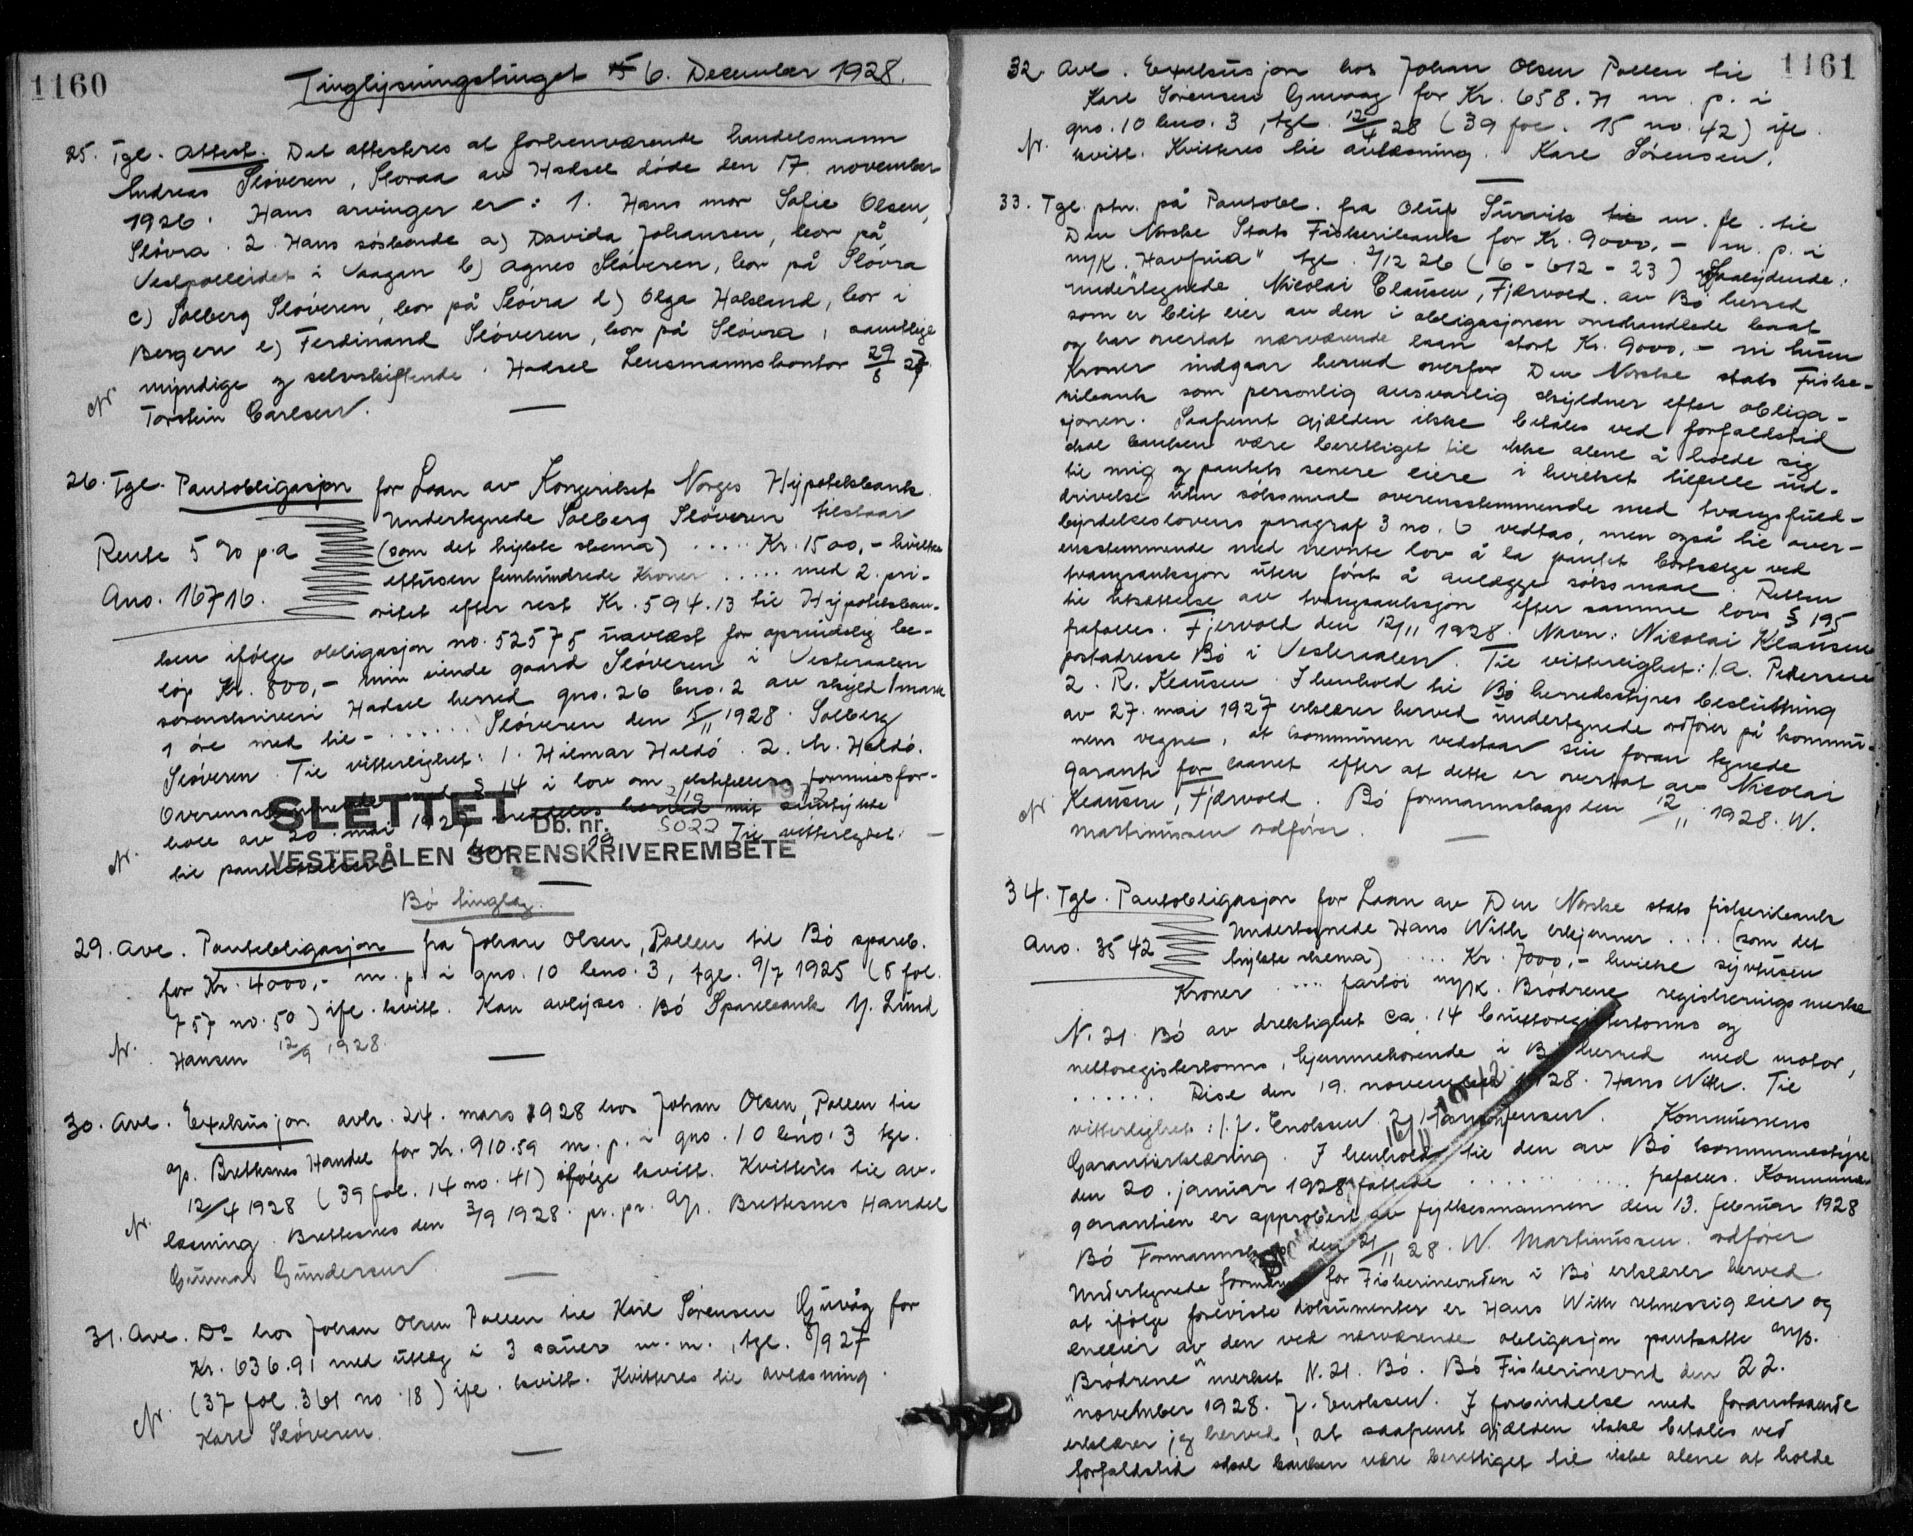 1160
Tinglysningstinget 6. December 1928.
25. Tgl. Attest. Det attesteres at forhenværende handelsmann
Andreas Slöveren, Slovra av Hadsel döde den 17. november
1926. Hans arvinger er: 1. Hans mor Sofie Olsen,
Slövra. 2. Hans söskende a) Davida Johansen, bor på
Vestpolleidet i Vaagan b) Agnes Slöveren, bor på Slövra
c) Solberg Slöveren, bor på Slövra d) Olga Halsland, bor i
Bergen e) Ferdinand Slöveren, bor på Slövra, samtlige
myndige og selvskiftende. Hadsel Lensmannskontor 29/8 27
Torstein Carlsen.
26. Tgl. Pantobligasjon for Laan av Kongeriket Norges Hypotekbank
Undertegnede Solberg Slöveren tilstaar
Rente 5 % p.a (som det trykte skema) ..... Kr. 1500,- hvilke
ettusen femhundrede Kroner ..... med 2. pri-
Ano. 16716. oritet efter rest Kr. 594.13 til Hypotekban-
ken ifölge obligasjon no. 52575 uavlæst for oprindelig be-
löp Kr. 800,- min eiende gaard Slöveren i Vesteraalen
sorenskriveri Hadsel herred gno. 26 bno. 2 av skyld 1 mark
1 öre med til- ...... Slöveren den 5/11 1928. Solberg
Slöveren. Til vitterlighet: 1. Hilmar Haldó. 2. M. Haldó.
Overensstemmende med § 14 i lov om ektefellers formuesfor-
hold av 20. mai 1927 meddeles herved mit samtykke
til pantsettelsen Til vitterlighet: —
SLETTET
Db. nr. 5022
VESTERÅLEN SORENSKRIVEREMBETE
Bö tinglag.
29. Avl. Pantobligasjon fra Johan Olsen, Pollen til Bö spareb.
for Kr. 4000,- m. p. i gno. 10 bno. 3, tgl. 9/7 1925 (5 fol.
757 no. 50) ifl. kvitt. Kan avlyses. Bö Sparebank Y. Lund
Hansen 12/9 1928.
30. Avl. Exekusjon avh. 24. mars 1928 hos Johan Olsen, Pollen til
A/S. Brettesnes Handel for Kr. 910.59 m. p. i gno. 10 bno. 3 tgl.
12/4 1928 (39 fol. 14 no. 41) ifölge kvitt. Kvitteres til av-
læsning. Brettesnes den 3/9 1928. pr. pr. A/S. Brettesnes Handel
Gunnar Gundersen
31. Avl. Do hos Johan Olsen Pollen til Karl Sörensen Guvåg for
Kr. 636.91 med utlæg i 3 sauer m. m., tgl. 8/9 27
(37 fol. 361 no. 18) ifl. kvitt. Kvitteres til avlæsning.
Karl Slöveren.
1161
32. Avl. Exekusjon hos Johan Olsen Pollen til
Karl Sörensen Guvaag for Kr. 658.71 m. p. i
gno. 10 bno. 3, tgl. 12/4 28 (39 fol. 15 no. 42) ifl.
kvitt. Kvitteres til avlæsning. Karl Sörensen.
33. Tgl. ptn. på Pantobl. fra Oluf Turvik m. fl. til
Den Norske Stats Fiskeribank for Kr. 9000,- m. p. i
m/k. "Havfrua" tgl. 2/12 26 (6 - 612 - 23) saalydende:
Undertegnede Nicolai Clausen, Fjærvold av Bö herred
som er blit eier av den i obligasjonen omhandlede baat
og har overtat nærværende laan stort Kr. 9000,- ni tusen
Kroner indgaar herved overfor Den Norske stats Fiske-
ribank som personlig ansvarlig skyldner efter obliga-
sjonen. Saafremt gjælden ikke betales ved forfaldstid
skal banken være berettiget til ikke alene å holde sig
til mig og pantets senere eiere i hvilket tilfælde ind-
drivelse uten söksmaal overensstemmende med tvangsfuld-
byrdelseslovens paragraf 3 no. 6 vedtas, men også til over-
ensstemmende med nevnte lov å la pantet bortsælge ved
tvangsauksjon uten först å anlægge söksmaal. Retten
til utsættelse av tvangsauksjon efter samme lovs § 195
frafalles. Fjervold den 12/11 1928. Navn: Nicolai Klausen
postadresse Bö i Vesteraalen. Til vitterlighet: 1. A. Pedersen
2. R. Klausen. I henhold til Bö herredsstyres beslutning
av 27. mai 1927 erklærer herved undertegnede ordförer på kommu-
nens vegne, at kommunen vedstaar sin foran tegnede
garanti for laanet efter at dette er overtat av Nicolai
Klausen, Fjærvold. Bö formannskap den 12/11 1928. W.
Martinussen ordförer.
34. Tgl. Pantobligasjon for Laan av Den Norske stats fiskeribank
Undertegnede Hans With erkjenner .... (som det
Ano. 3542 trykte skema) .... Kr. 7000,- hvilke syvtusen
Kroner .... fartöi m/k. Brödrene registreringsmerke
N. 21. Bö av drektighet ca. 14 bruttoregistertonns og
nettoregistertonns, hjemmehörende i Bö herred med motor,
...... Rise den 19. november 1928. Hans With. Til
vitterlighet: 1. J. Enoksen 2. Jensen. Kommunens
Garantierklæring. I henhold til den av Bö kommunestyre
den 20. januar 1928 fattede ............ frafalles. Kommune-
garantien er approbert av fylkesmannen den 13. februar 1928
Bö Formannskap den 21/11 28. W. Martinussen ordförer
Undertegnede formann for Fiskerinevnden i Bö erklærer herved
at ifölge foreviste dokumenter er Hans With retmessig eier og
eneeier av den ved nærværende obligasjon pantsatte m/k.
"Brödrene" merket N. 21. Bö. Bö Fiskerinevnd den 22.
november 1928. J. Enoksen. I forbindelse med foranstaaende
erklærer jeg herved, at saafremt gjælden ikke betales ved
forfaldstid skal banken være berettiget til ikke alene at holde